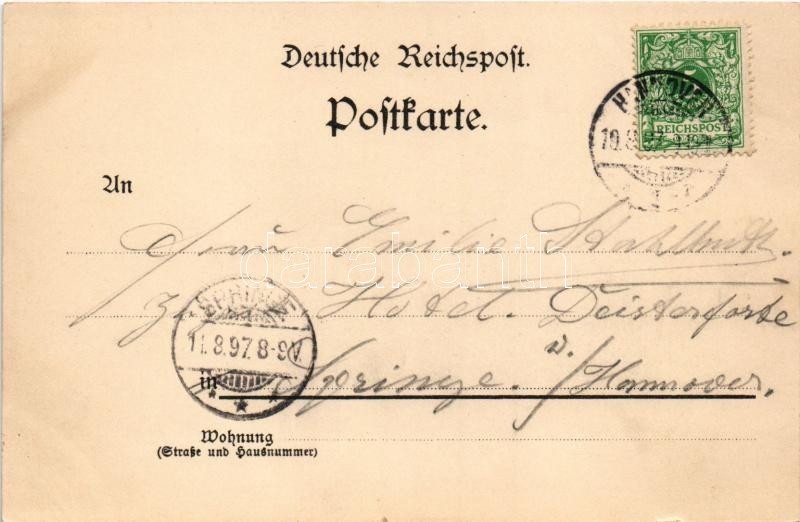 Deutsche Reichspost.
Postkarte.
REICHSPOST
HANNOVER
10.8.97
An
Frau Emilie
Hotel Deisterforte
SPRINGE
11.8.97. 8-9V.
in Springe. b./Hannover.
Wohnung
(Straße und Hausnummer)
darabanth